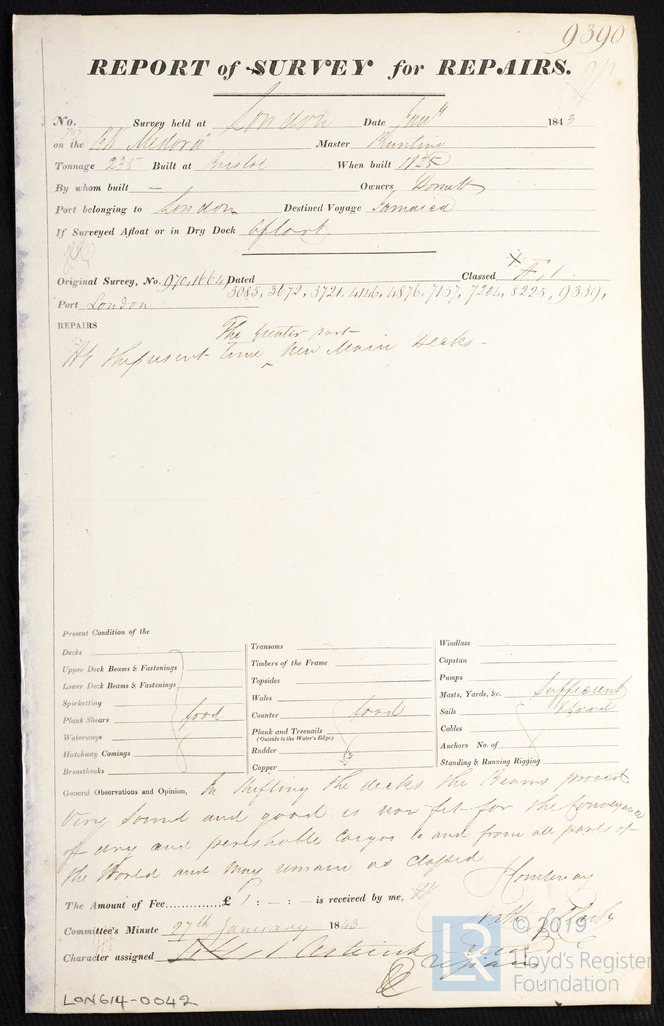 9390
REPORT of SURVEY for REPAIRS.
No. Survey held at London Date Jany 1843
on the Bk Medora Master Bunting
Tonnage 235 Built at Bristol When built 1825
By whom built — Owners Dornett
Port belonging to London Destined Voyage Jamaica
If Surveyed Afloat or in Dry Dock afloat
Original Survey, No. 970, 1664, Dated Classed Æ, 1.
3085, 3672, 3721, 4146, 4876, 7137, 7204, 8225, 9339,
Port London
REPAIRS
The greater part
At the present time ‸ New Main decks -
Present Condition of the
Decks
Upper Deck Beams & Fastenings
Lower Deck Beams & Fastenings
Spirketting
Plank Shears good
Waterways
Hatchway Comings
Breasthooks
Transoms
Timbers of the Frame
Topsides
Wales
Counter good
Plank and Treenails
(Outside to the Water's Edge)
Rudder
Copper
Windlass
Capstan
Pumps
Masts, Yards, &c. Sufficient
Sails & Good
Cables
Anchors No. of
Standing & Running Rigging
General Observations and Opinion, In shifting the decks the Beams proved
very sound and good is now fit for the Conveyance
of dry and perishable Cargos to and from all parts of
the World and may remain as classed
The Amount of Fee £ 1 : - : - is received by me,
Committee's Minute 27th January 1843
Character assigned
LON614-0042
LR
© 2019
Lloyd's Register
Foundation